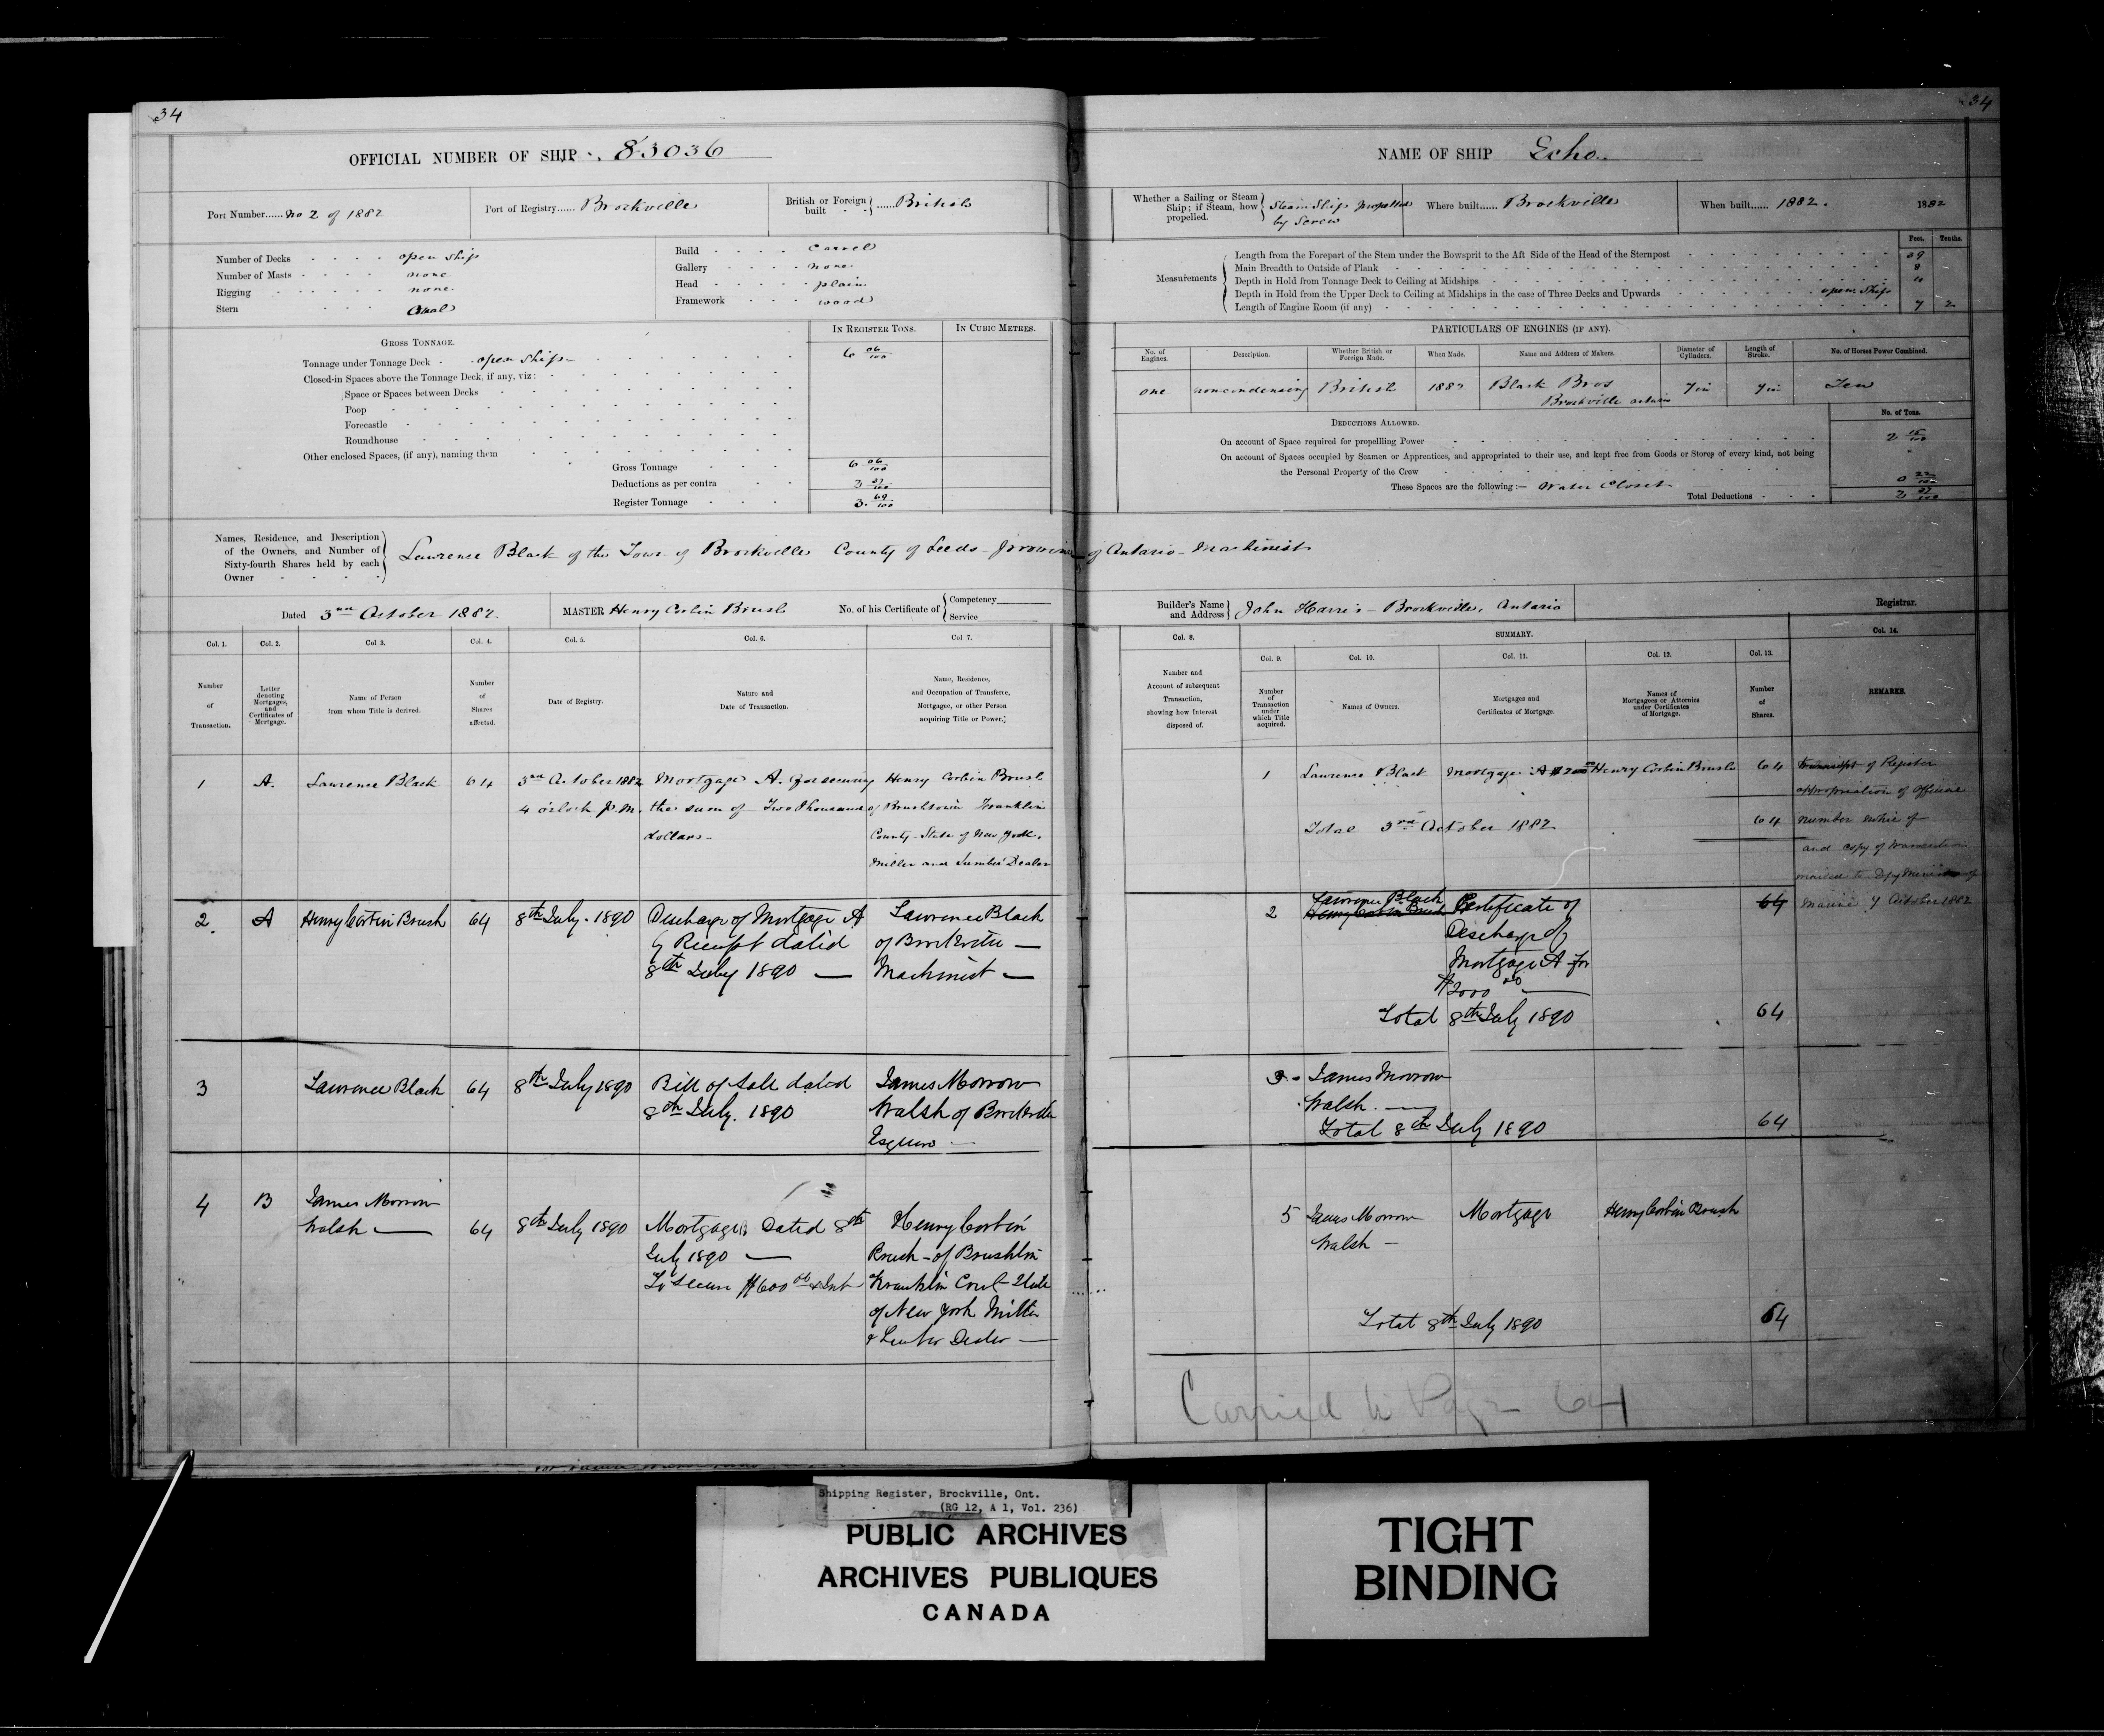 34
OFFICIAL NUMBER OF SHIP 83036
Port Number...... no 2 of 1882
Port of Registry...... Brockville
British or Foreign built ...... British
Number of Decks open ship
Number of Masts none
Rigging none
Stern
Build Carvel
Gallery none
Head plain
Framework wood
GROSS TONNAGE.
IN REGISTER TONS.
IN CUBIC METRES.
Tonnage under Tonnage Deck open ship 6 06/100
Closed-in Spaces above the Tonnage Deck, if any, viz:
Space or Spaces between Decks
Poop
Forecastle
Roundhouse
Other enclosed Spaces, (if any), naming them
Gross Tonnage 6 06/100
Deductions as per contra 2 37/100
Register Tonnage 3 69/100
Names, Residence, and Description
of the Owners, and Number of
Sixty-fourth Shares held by each
Owner
Lawrence Black of the Town of Brockville County of Leeds Province of Ontario Machinist
Dated 3rd October 1882
MASTER Henry Corbin Brush
No. of his Certificate of
Competency
Service
Col. 1.
Col. 2.
Col 3.
Col. 4.
Col. 5.
Col. 6.
Col 7.
Number
of
Transaction.
Letter
denoting
Mortgages,
and
Certificates of
Mortgage.
Name of Person
from whom Title is derived.
Number
of
Shares
affected.
Date of Registry.
Nature and
Date of Transaction.
Name, Residence,
and Occupation of Transferee,
Mortgagee, or other Person
acquiring Title or Power.
1 A. Lawrence Black 64
3rd October 1882
4 o'clock P.M.
Mortgage A. for securing
the sum of Two Thousand
dollars
Henry Corbin Brush
of Brushtown Franklin
County State of New York,
Miller and Lumber Dealer
2 A Henry Corbin Brush 64 8th July 1890
Discharge of Mortgage A
by Receipt dated
8th July 1890
Lawrence Black
of Brockville
Machinist
3 Lawrence Black 64 8th July 1890
Bill of Sale dated
8th July. 1890
James Morrow
Walsh of Brockville
Esquire
4 B James Morrow
Walsh 64 8th July 1890
Mortgage B Dated 8th
July 1890
To secure $600 00 & Int
Henry Corbin
Brush of Brushton
Franklin State
of New York Miller
& Lumber Dealer
34
NAME OF SHIP Echo
Whether a Sailing or Steam
Ship; if Steam, how
propelled.
Steam Ship propelled
by Screw
Where built...... Brockville
When built...... 1882.
1882
Measurements
Feet. Tenths.
Length from the Forepart of the Stem under the Bowsprit to the Aft Side of the Head of the Sternpost
Main Breadth to Outside of Plank 8
Depth in Hold from Tonnage Deck to Ceiling at Midships
Depth in Hold from the Upper Deck to Ceiling at Midships in the case of Three Decks and Upwards open Ship
Length of Engine Room (if any) 7 2
PARTICULARS OF ENGINES (IF ANY).
No. of
Engines.
Description.
Whether British or
Foreign Made.
When Made.
Name and Address of Makers.
Diameter of
Cylinders.
Length of
Stroke.
No. of Horses Power Combined.
one noncondensing British 1882 Black Bros
Brockville Ontario
7 in 7 in Ten
DEDUCTIONS ALLOWED.
No. of Tons.
On account of Space required for propellling Power 2 15/100
On account of Spaces occupied by Seamen or Apprentices, and appropriated to their use, and kept free from Goods or Stores of every kind, not being
the Personal Property of the Crew
These Spaces are the following:— Water Closet 0 22/100
Total Deductions 2 37/100
Builder's Name
and Address
John Harris - Brockville, Ontario
Registrar.
Col. 8.
SUMMARY.
Col. 14.
Col. 9.
Col. 10.
Col. 11.
Col. 12.
Col. 13.
Number and
Account of subsequent
Transaction,
showing how Interest
disposed of.
Number
of
Transaction
under
which Title
acquired.
Names of Owners.
Mortgages and
Certificates of Mortgage.
Names of
Mortgagees or Attornies
under Certificates
of Mortgage.
Number
of
Shares.
REMARKS.
1 Lawrence Black Mortgage A $2000 Henry Corbin Brush 64
Total 3rd October 1882 64
Transcript of Register
appropriation of Official
number
and copy of transaction
mailed to Dpy Minister of
Marine 7 October 1882
2 Lawrence Black
Henry Corbin Brush
Certificate of
Discharge of
Mortgage A for
$2000 00
64
Total 8th July 1890 64
3 James Morrow
Walsh.
Total 8th July 1890 64
5 James Morrow
Walsh
Mortgage
Henry Corbin Brush
Total 8th July 1890 64
Carried to Page 64
Shipping Register, Brockville, Ont.
(RG 12, A 1, Vol. 236)
PUBLIC ARCHIVES
ARCHIVES PUBLIQUES
CANADA
TIGHT
BINDING